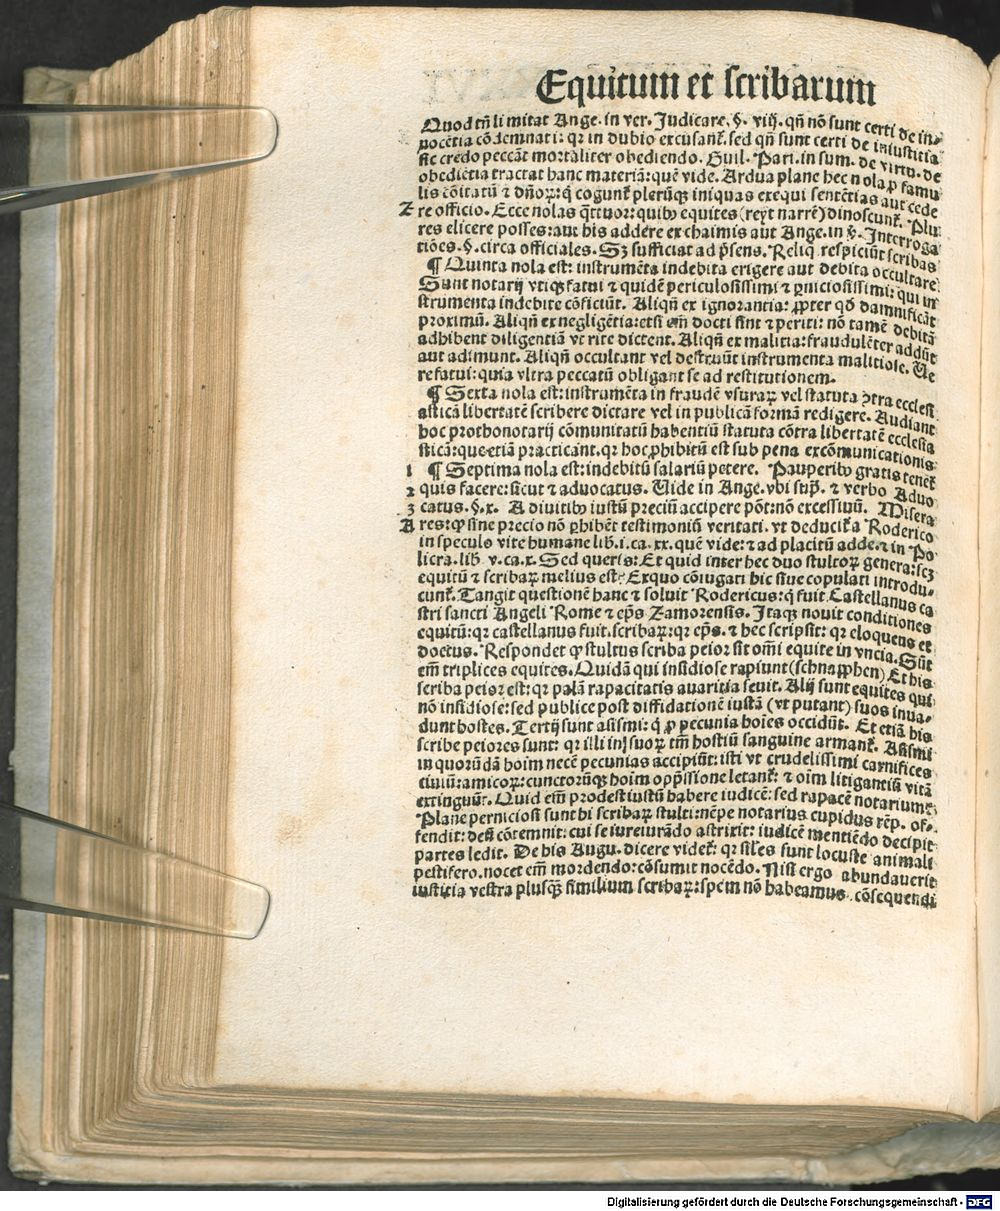 Equitum et scribarum
Quod tñ limitat Ange. in ver. Judicare. §. viij. qñ nõ sunt certi de in-
nocẽtia cõdemnati: qr in dubio excusant̃. sed qñ sunt certi de iniustitia
sic credo peccãt mortaliter obediendo. Guil. Pari. in sum. de virtu. de
obediẽtia tractat hanc materiã: quẽ vide. Ardua plane hec nola ꝓ famu
lis cõitatũ ⁊ dñoꝝ: q̃ cogunt̃ plerũqꝫ iniquas exequi sentẽtias aut cede
Z re officio. Ecce nolas q̃ttuor: quibꝰ equites (reyt narrẽ) dinoscunt̃. Plu
res elicere posses: aut his addere ex chaimis aut Ange. in ꝟ. Interroga
tiões. §. circa officiales. Sꝫ sufficiat ad p̃sens. Reliq̃ respiciũt scribas
¶ Quinta nola est: instrumẽta indebita erigere aut debita occultare.
Sunt notarij vtiqꝫ fatui ⁊ quidẽ periculosissimi ⁊ ꝑniciosissimi: qui in
strumenta indebite cõficiũt. Aliqñ ex ignorantia: ꝓpter qđ damnificãt
proximũ. Aliqñ ex negligẽtia: etsi em̃ docti sint ⁊ periti: nõ tamẽ debitã
adhibent diligentiã vt rite dictent. Aliqñ ex malitia: fraudulẽter addũt
aut adimunt. Aliqñ occultant vel destruũt instrumenta malitiose. Ue
re fatui: quia vltra peccatũ obligant se ad restitutionem.
¶ Sexta nola est: instrumẽta in fraudẽ vsuraꝝ vel statuta ↄ̃tra ecclesi
asticã libertatẽ scribere dictare vel in publicã formã redigere. Audiant
hoc prothonotarij cõmunitatũ habentiũ statuta cõtra libertatẽ ecclesia
sticã: que etiã practicant. qr hoc ꝓhibitũ est sub pena excõmunicationis
1 ¶ Septima nola est: indebitũ salariũ petere. Pauperibꝰ gratis tenet̃
2 quis facere: sicut ⁊ aduocatus. Uide in Ange. vbi sup̃. ⁊ verbo Aduo
3 catus. §. x. A diuitibꝰ iustũ preciũ accipere põt: nõ excessiuũ. Misera
A res: qꝫ sine precio nõ ꝓhibẽt testimoniũ veritati. vt deducit̃ a Roderico
in speculo vite humane lib. i. ca. xx. quẽ vide: ⁊ ad placitũ adde. ⁊ in Po
licra. lib v. ca. x. Sed queris: Et quid inter hec duo stultoꝝ genera: scꝫ
equitũ ⁊ scribaꝝ melius est: Exquo cõiugati hic siue copulati introdu-
cunt̃. Tangit questionẽ hanc ⁊ soluit Rodericus: q̃ fuit Castellanus ca
stri sancti Angeli Rome ⁊ ep̃s Zamorensis. Itaqꝫ nouit conditiones
equitũ: qr castellanus fuit. scribaꝝ: qr ep̃s. ⁊ hec scripsit: qr eloquens et
doctus. Respondet qꝫ stultus scriba peior sit om̃i equite in vncia. Sũt
em̃ triplices equites. Quidã qui insidiose rapiunt (schnapphen) Et his
scriba peior est: qr palã rapacitatis auaritia seuit. Alij sunt equites qui
nõ insidiose: sed publice post diffidationẽ iustã (vt putant) suos inua-
dunt hostes. Tertij sunt asismi: q̃ ꝓ pecunia hoĩes occidũt. Et etiã his
scribe peiores sunt: qr illi in suoꝝ tm̃ hostiũ sanguine armant̃. Asismi
in quorũdã hoim necẽ pecunias accipiũt: isti vt crudelissimi carnifices
ciuiũ: amicoꝝ: cunctorũqꝫ hoim opp̃ssione letant̃: ⁊ oĩm litigantiũ vitã
extinguũt. Quid em̃ prodest iustũ habere iudicẽ: sed rapacẽ notariumꝫ
Plane perniciosi sunt hi scribaꝝ stulti: nẽpe notarius cupidus rẽp. of-
fendit: deũ cõtemnit: cui se iureiurãdo astrixit: iudicẽ mentiẽdo decipit
partes ledit. De his Augu. dicere videt̃: qr sil̃es sunt locuste animali
pestifero. nocet em̃ mordendo: cõsumit nocẽdo. Nisi ergo abundauerit
iustitia vestra plusqꝫ similium scribaꝝ: spem nõ habeamus cõsequendi
Digitalisierung gefördert durch die Deutsche Forschungsgemeinschaft - DFG